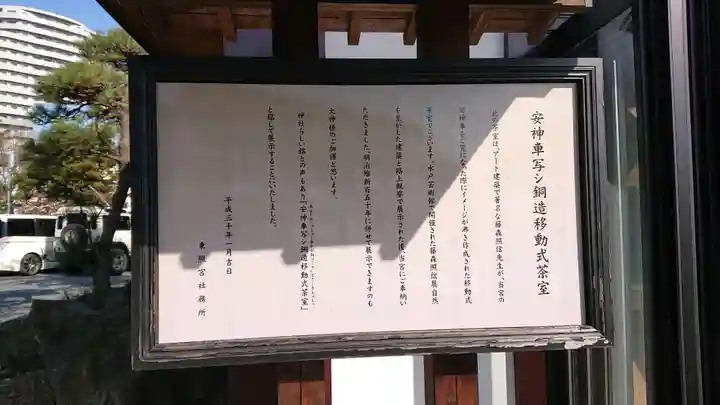 安神車写シ銅造移動式茶室
此の茶室は、アート建築で著名な藤森照信先生が、当宮の
安神車をご覧になった際にイメージが湧き作成された移動式
茶室でございます。水戸芸術館で開催された藤森照信展自然
を生かした建築と路上観察で展示された後、当宮にご奉納い
ただきました。明治維新百五十年に併せて展示できますのも
大神様のご加護と思います。
神社らしい銘との声もあり「安神車写シ銅造移動式茶室」
と銘して展示することにいたしました。
平成三十年一月吉日
東照宮社務所